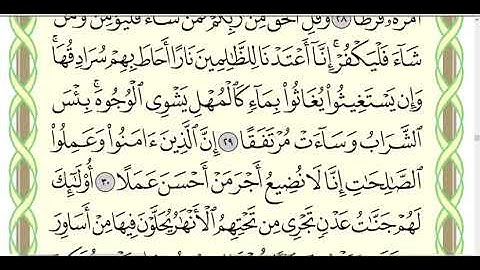 أَمۡرُهُۥ فُرُطٗا ٢٨ وَقُلِ ٱلۡحَقُّ مِن رَّبِّكُمۡۖ فَمَن شَآءَ فَلۡيُؤۡمِن وَمَن
شَآءَ فَلۡيَكۡفُرۡۚ إِنَّآ أَعۡتَدۡنَا لِلظَّٰلِمِينَ نَارًا أَحَاطَ بِهِمۡ سُرَادِقُهَاۚ
وَإِن يَسۡتَغِيثُواْ يُغَاثُواْ بِمَآءٖ كَٱلۡمُهۡلِ يَشۡوِي ٱلۡوُجُوهَۚ بِئۡسَ
ٱلشَّرَابُ وَسَآءَتۡ مُرۡتَفَقًا ٢٩ إِنَّ ٱلَّذِينَ ءَامَنُواْ وَعَمِلُواْ
ٱلصَّٰلِحَٰتِ إِنَّا لَا نُضِيعُ أَجۡرَ مَنۡ أَحۡسَنَ عَمَلًا ٣٠ أُوْلَٰٓئِكَ
لَهُمۡ جَنَّٰتُ عَدۡنٖ تَجۡرِي مِن تَحۡتِهِمُ ٱلۡأَنۡهَٰرُ يُحَلَّوۡنَ فِيهَا مِنۡ أَسَاوِرَ